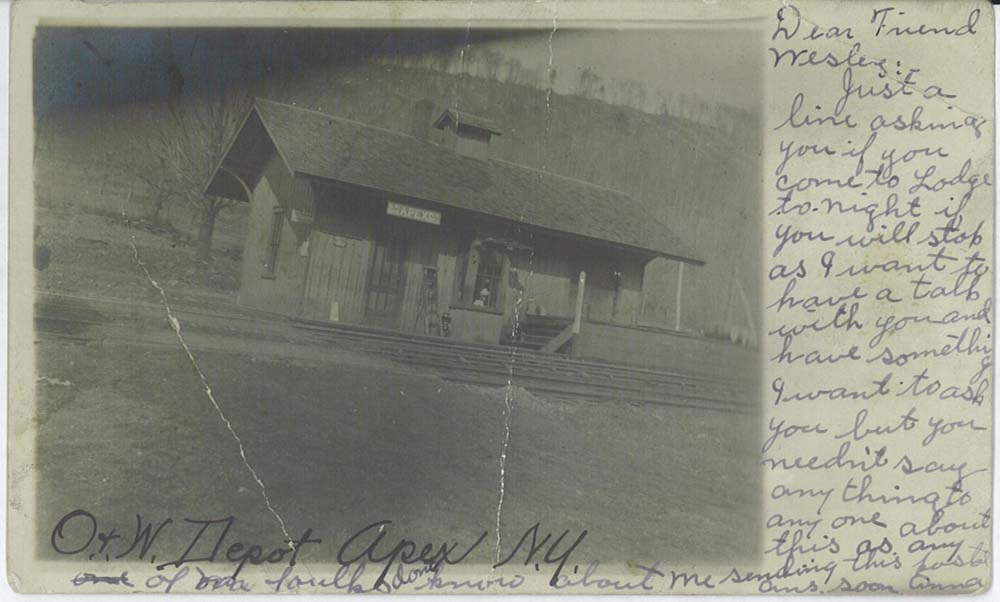 Dear Friend
Wesley:
Just a
line asking
you if you
come to Lodge
to-night if
you will stop
as I want to
have a talk
with you and
have somethig
I want to ask
you but you
needn't say
any thing to
any one about
this as any
one of our foulks done know about me sending this postal
ans. soon Anna
APEX
O. & W. Depot Apex N.Y.